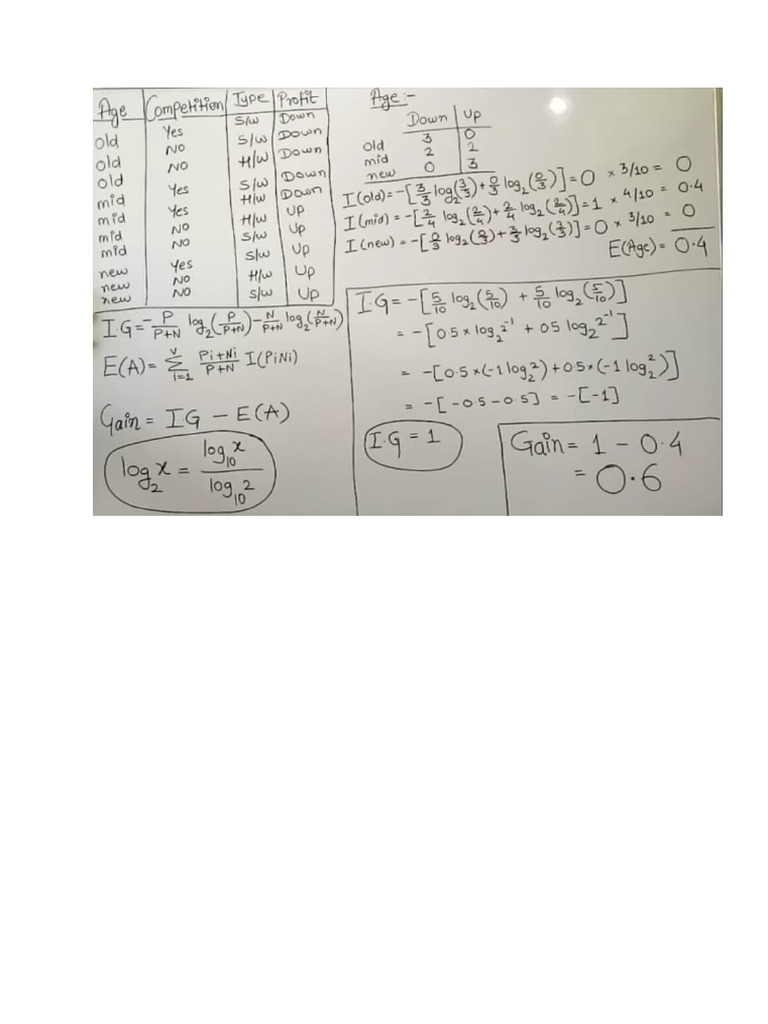 Age Competition Type Profit
old Yes S/W Down
old NO S/W Down
old NO H/W Down
mid Yes S/W Down
mid Yes H/W Down
mid NO H/W Up
mid NO S/W Up
new Yes S/W Up
new NO H/W Up
new NO S/W Up
I.G = -P/P+N log₂(P/P+N) - N/P+N log₂(N/P+N)
E(A) = Σᵢ₌₁ᵛ Pi+Ni/P+N I(PiNi)
Gain = IG - E(A)
log₂ x = log₁₀ x / log₁₀ 2
Age :-
Down Up
old 3 0
mid 2 2
new 0 3
I(old) = -[3/3 log₂(3/3) + 0/3 log₂(0/3)] = 0 × 3/10 = 0
I(mid) = -[2/4 log₂(2/4) + 2/4 log₂(2/4)] = 1 × 4/10 = 0.4
I(new) = -[0/3 log₂(0/3) + 3/3 log₂(3/3)] = 0 × 3/10 = 0
E(Age) = 0.4
I.G = -[5/10 log₂(5/10) + 5/10 log₂(5/10)]
= -[0.5 × log₂ 2⁻¹ + 0.5 log₂ 2⁻¹]
= -[0.5 × (-1 log₂²) + 0.5 × (-1 log₂²)]
= -[-0.5 - 0.5] = -[-1]
I.G = 1
Gain = 1 - 0.4
= 0.6